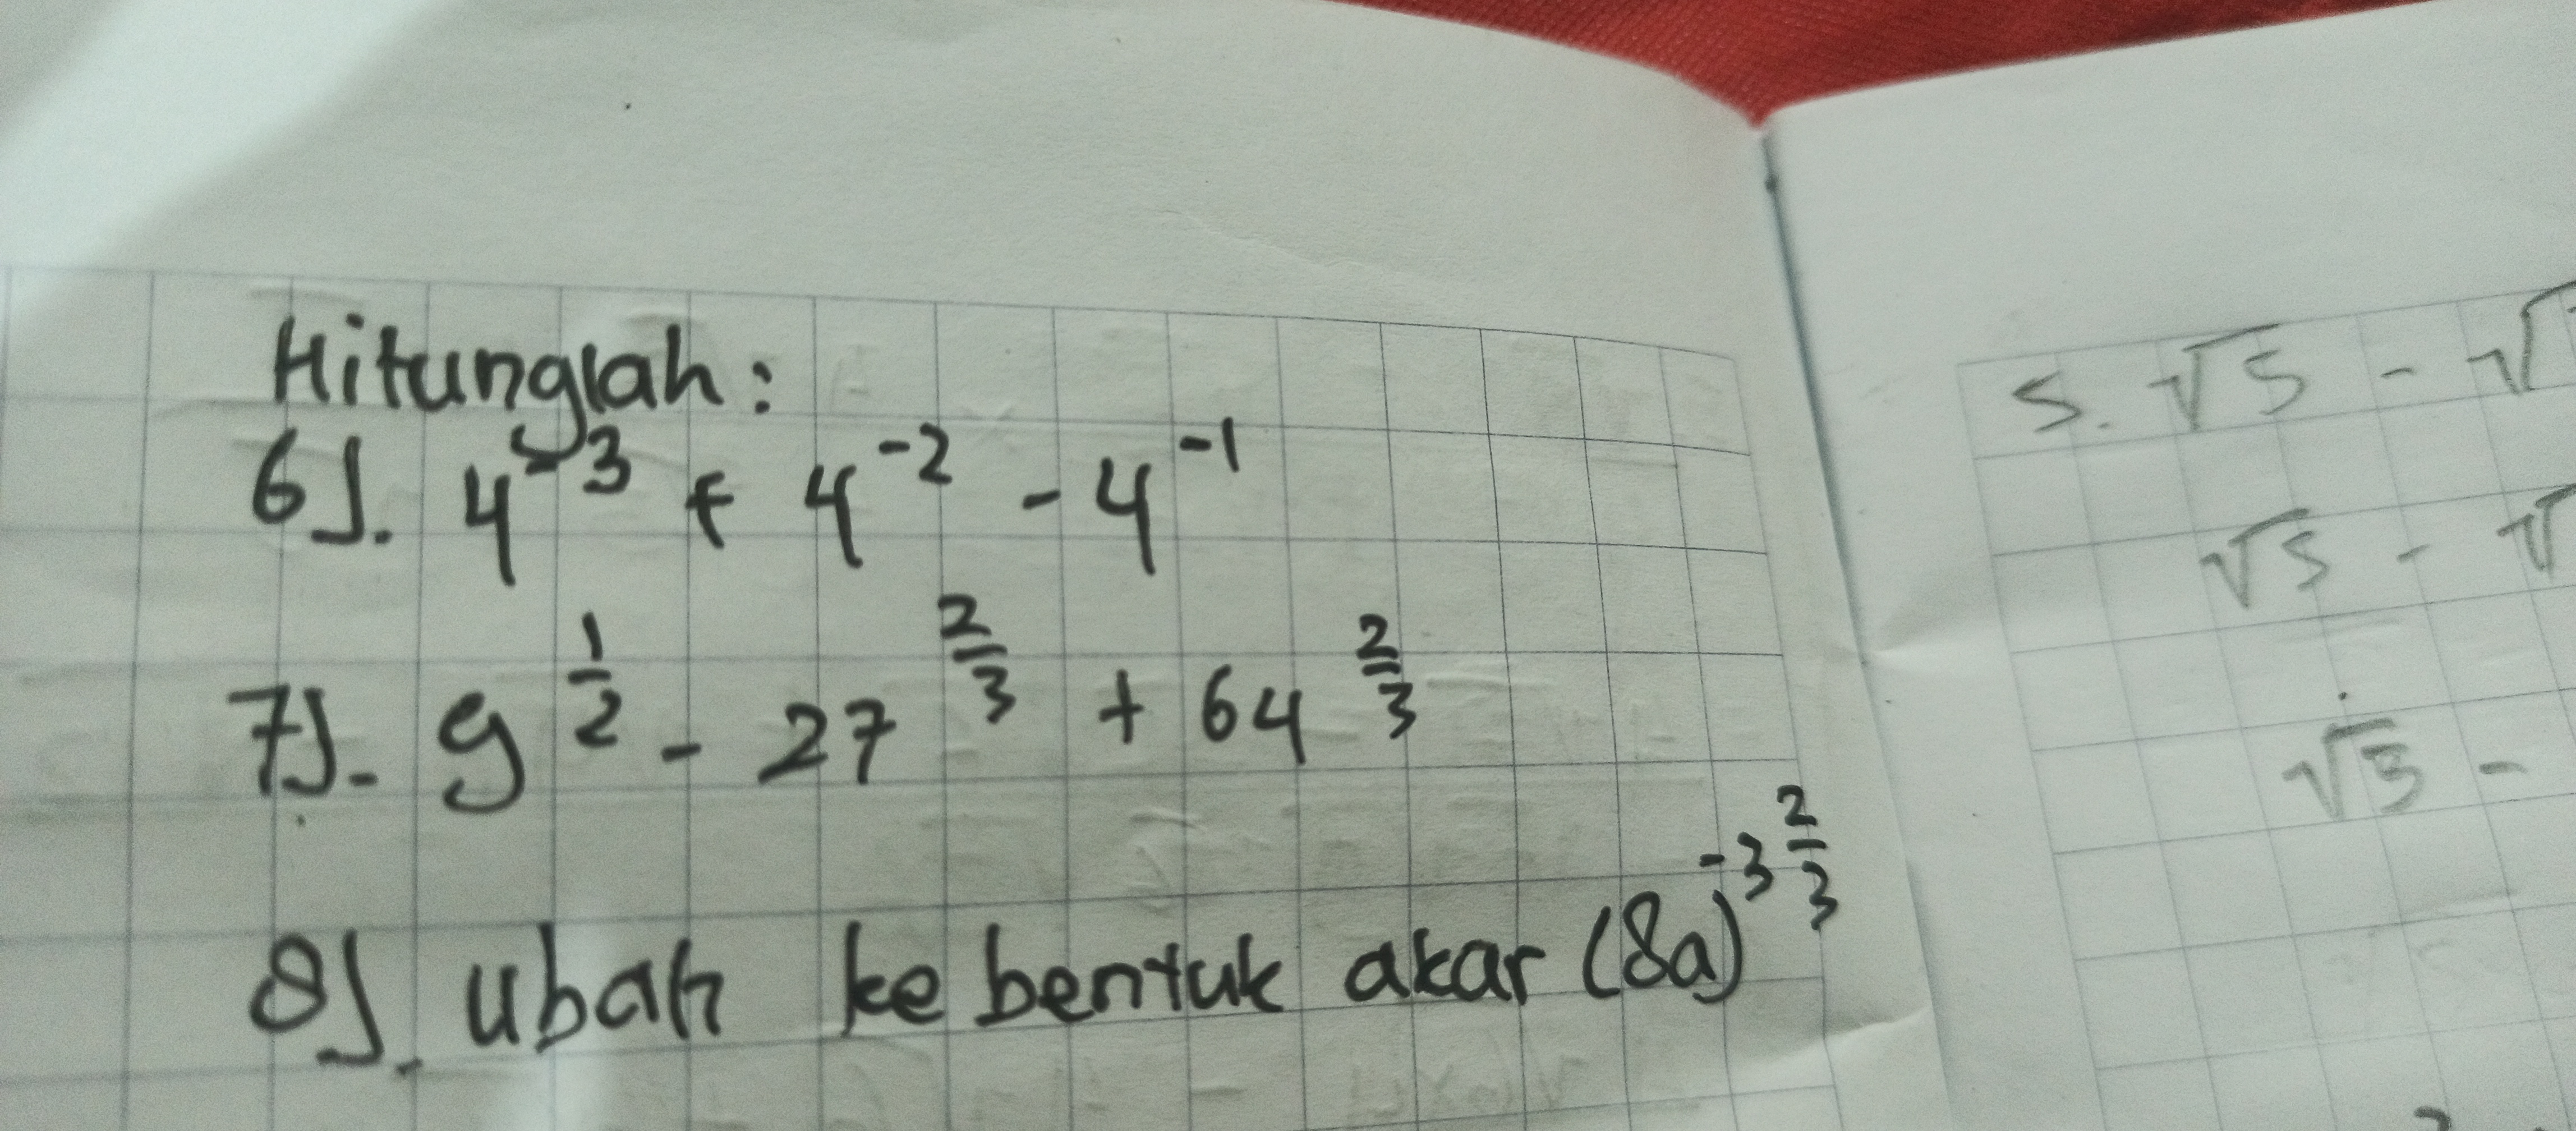 Hitunglah:
6). 4⁻³ + 4⁻² - 4⁻¹
7). 9^(1/2) - 27^(2/3) + 64^(2/3)
8). ubah ke bentuk akar (8a)^(-3 2/3)
5. √5 - √
√5 - √
√3 -